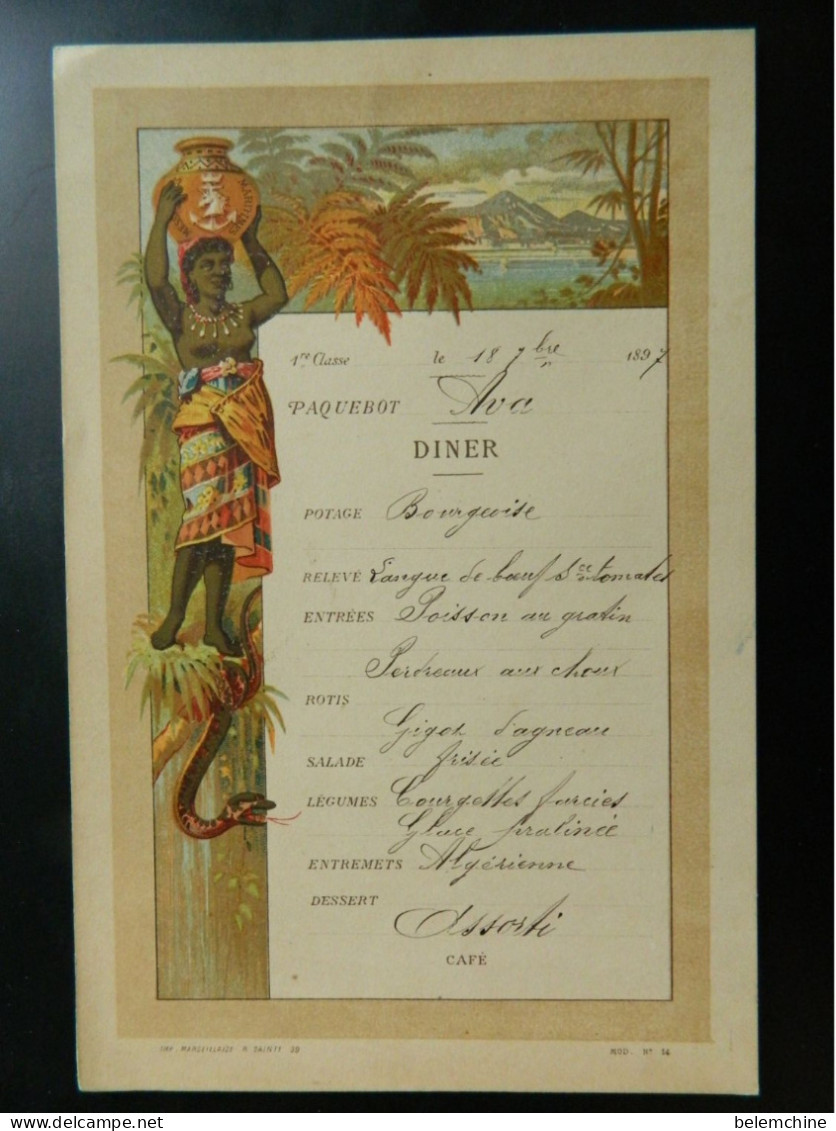 1re Classe le 18 7bre 1897
PAQUEBOT Ava
DINER
POTAGE Bourgeoise
RELEVÉ Langue de bœuf sce tomates
ENTRÉES Poisson au gratin
Perdreaux aux choux
ROTIS
Gigot d'agneau
SALADE frisée
LÉGUMES Courgettes farcies
Glace pralinée
ENTREMETS Algérienne
DESSERT
Assorti
CAFÉ
IMP. MARSEILLAISE R. SAINTE 39
MOD. No 14
belemchine